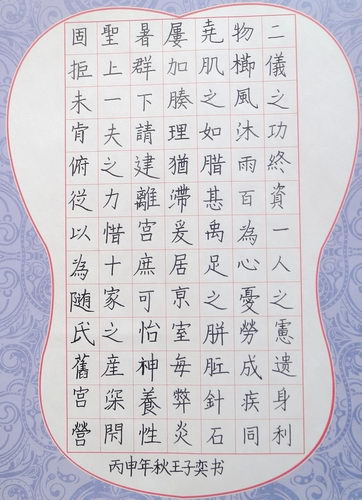 二儀之功終資一人之慮遺身利
物櫛風沐雨百為心憂勞成疾同
堯肌之如腊甚禹足之胼胝針石
屢加腠理猶滯爰居京室每弊炎
暑群下請建離宮庶可怡神養性
聖上一夫之力惜十家之産深閇
固拒未肯俯從以為随氏舊宮營
丙申年秋王子奕书